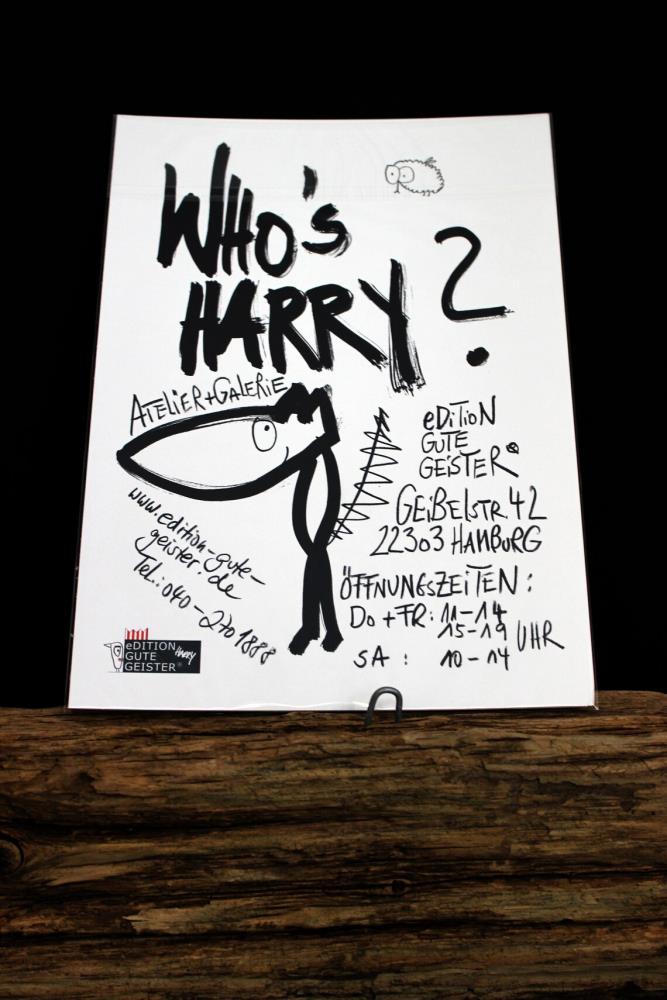 WHO'S
HARRY?
ATELIER+GALERIE
eDiTiON
GUTE
GEiSTER®
GEiBElSTR. 42
22303 HAMBURG
www.edition-gute-
geister.de
Tel.: 040 - 270 1888
ÖFFNUNGSZEiTEN:
Do + FR: 11-14
15-19 UHR
SA : 10-14
eDITION
GUTE HARRY
GEISTER®